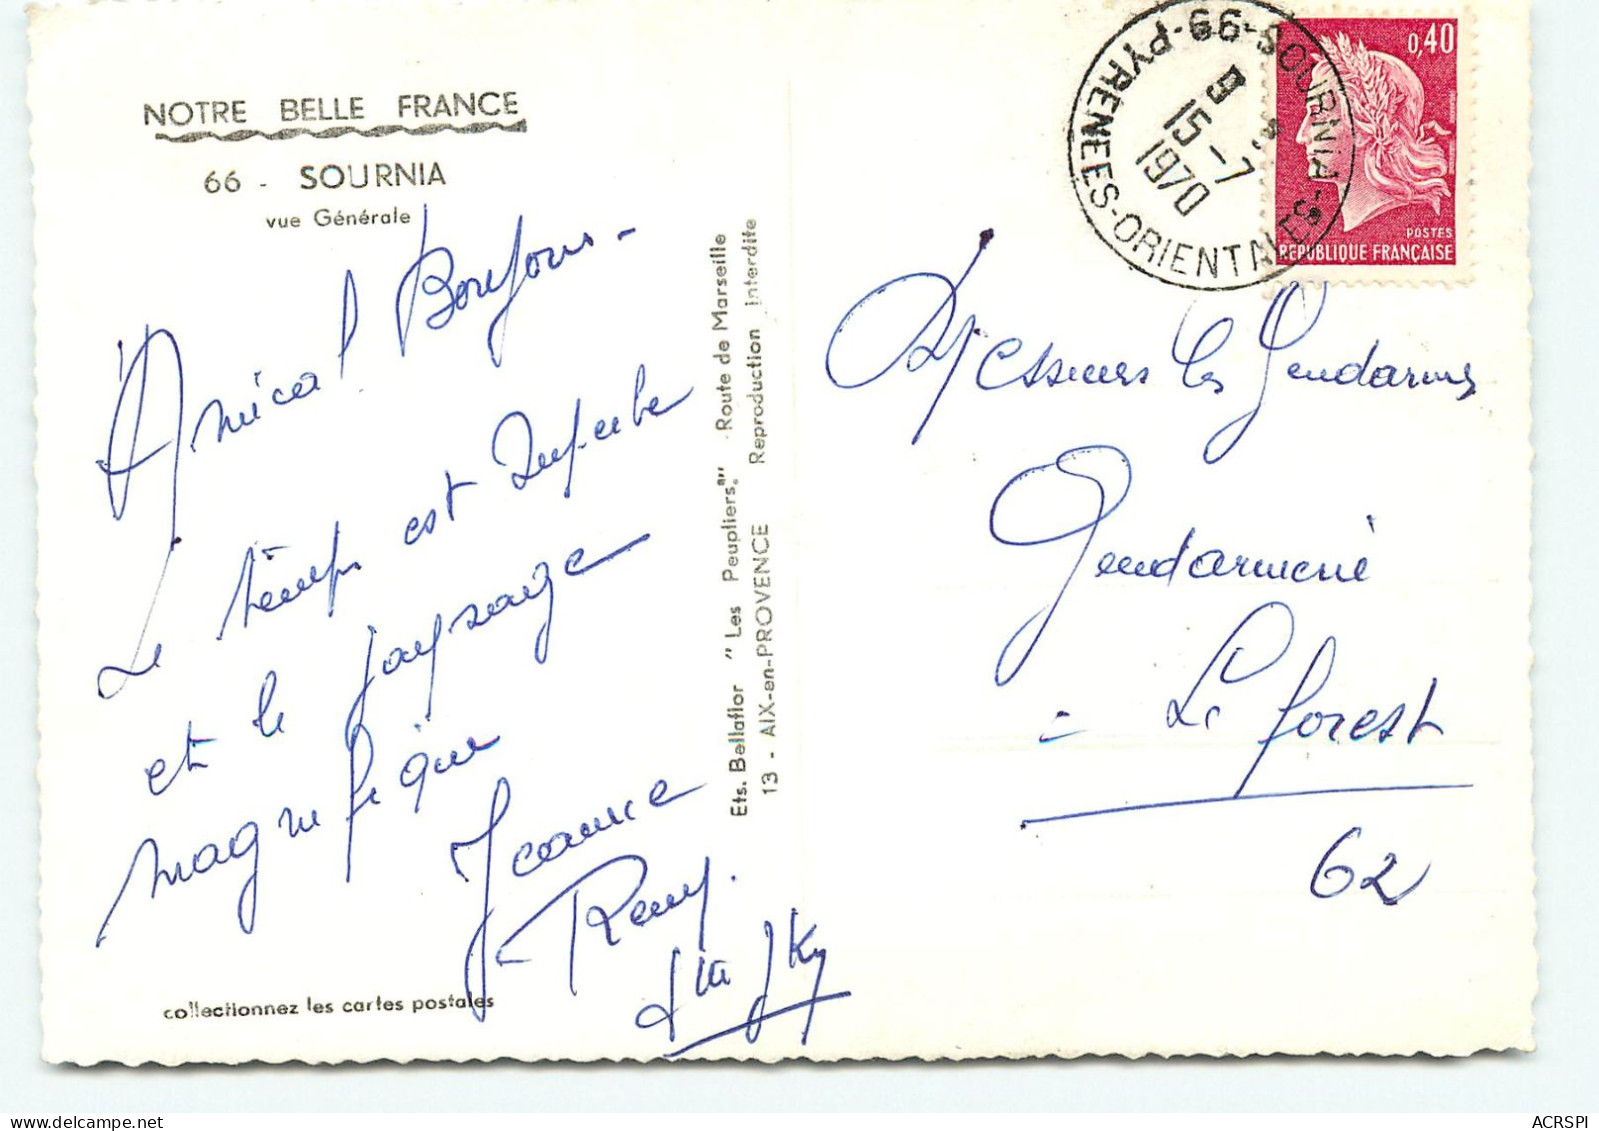 NOTRE BELLE FRANCE
66 - SOURNIA
vue Générale
Amical Bonjour -
Le temps est superbe
et le paysage
magnifique
Jeanne
Remy.
collectionnez les cartes postales
Ets. Bellaflor " Les Peupliers " Route de Marseille
13 - AIX-en-PROVENCE Reproduction interdite
SOURNIA - PYRENEES-ORIENTALES
15-7
1970
0,40
POSTES
REPUBLIQUE FRANÇAISE
Messieurs les Gendarmes
Gendarmerie
= Le forest
62
ACRSPI